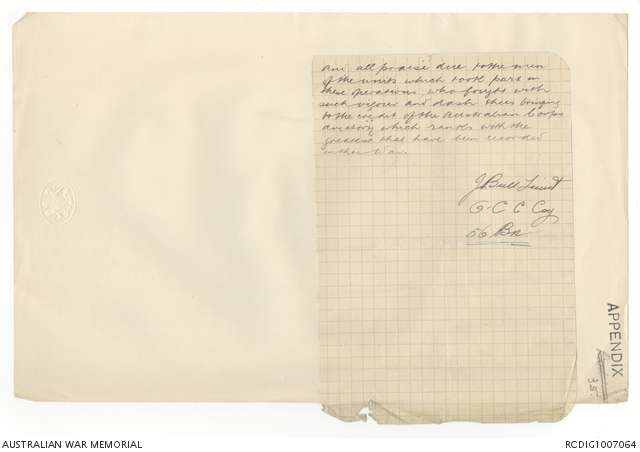 and all praise due to the men
of the units which took part in
these operations who fought with
such vigour and dash thus bringing
to the credit of the Australian Corps
a victory which ranks with the
greatest that have been recorded
in this War.
J Bull Lieut
O.C C Coy
56 Bn
APPENDIX
35.
AUSTRALIAN WAR MEMORIAL
RCDIG1007064